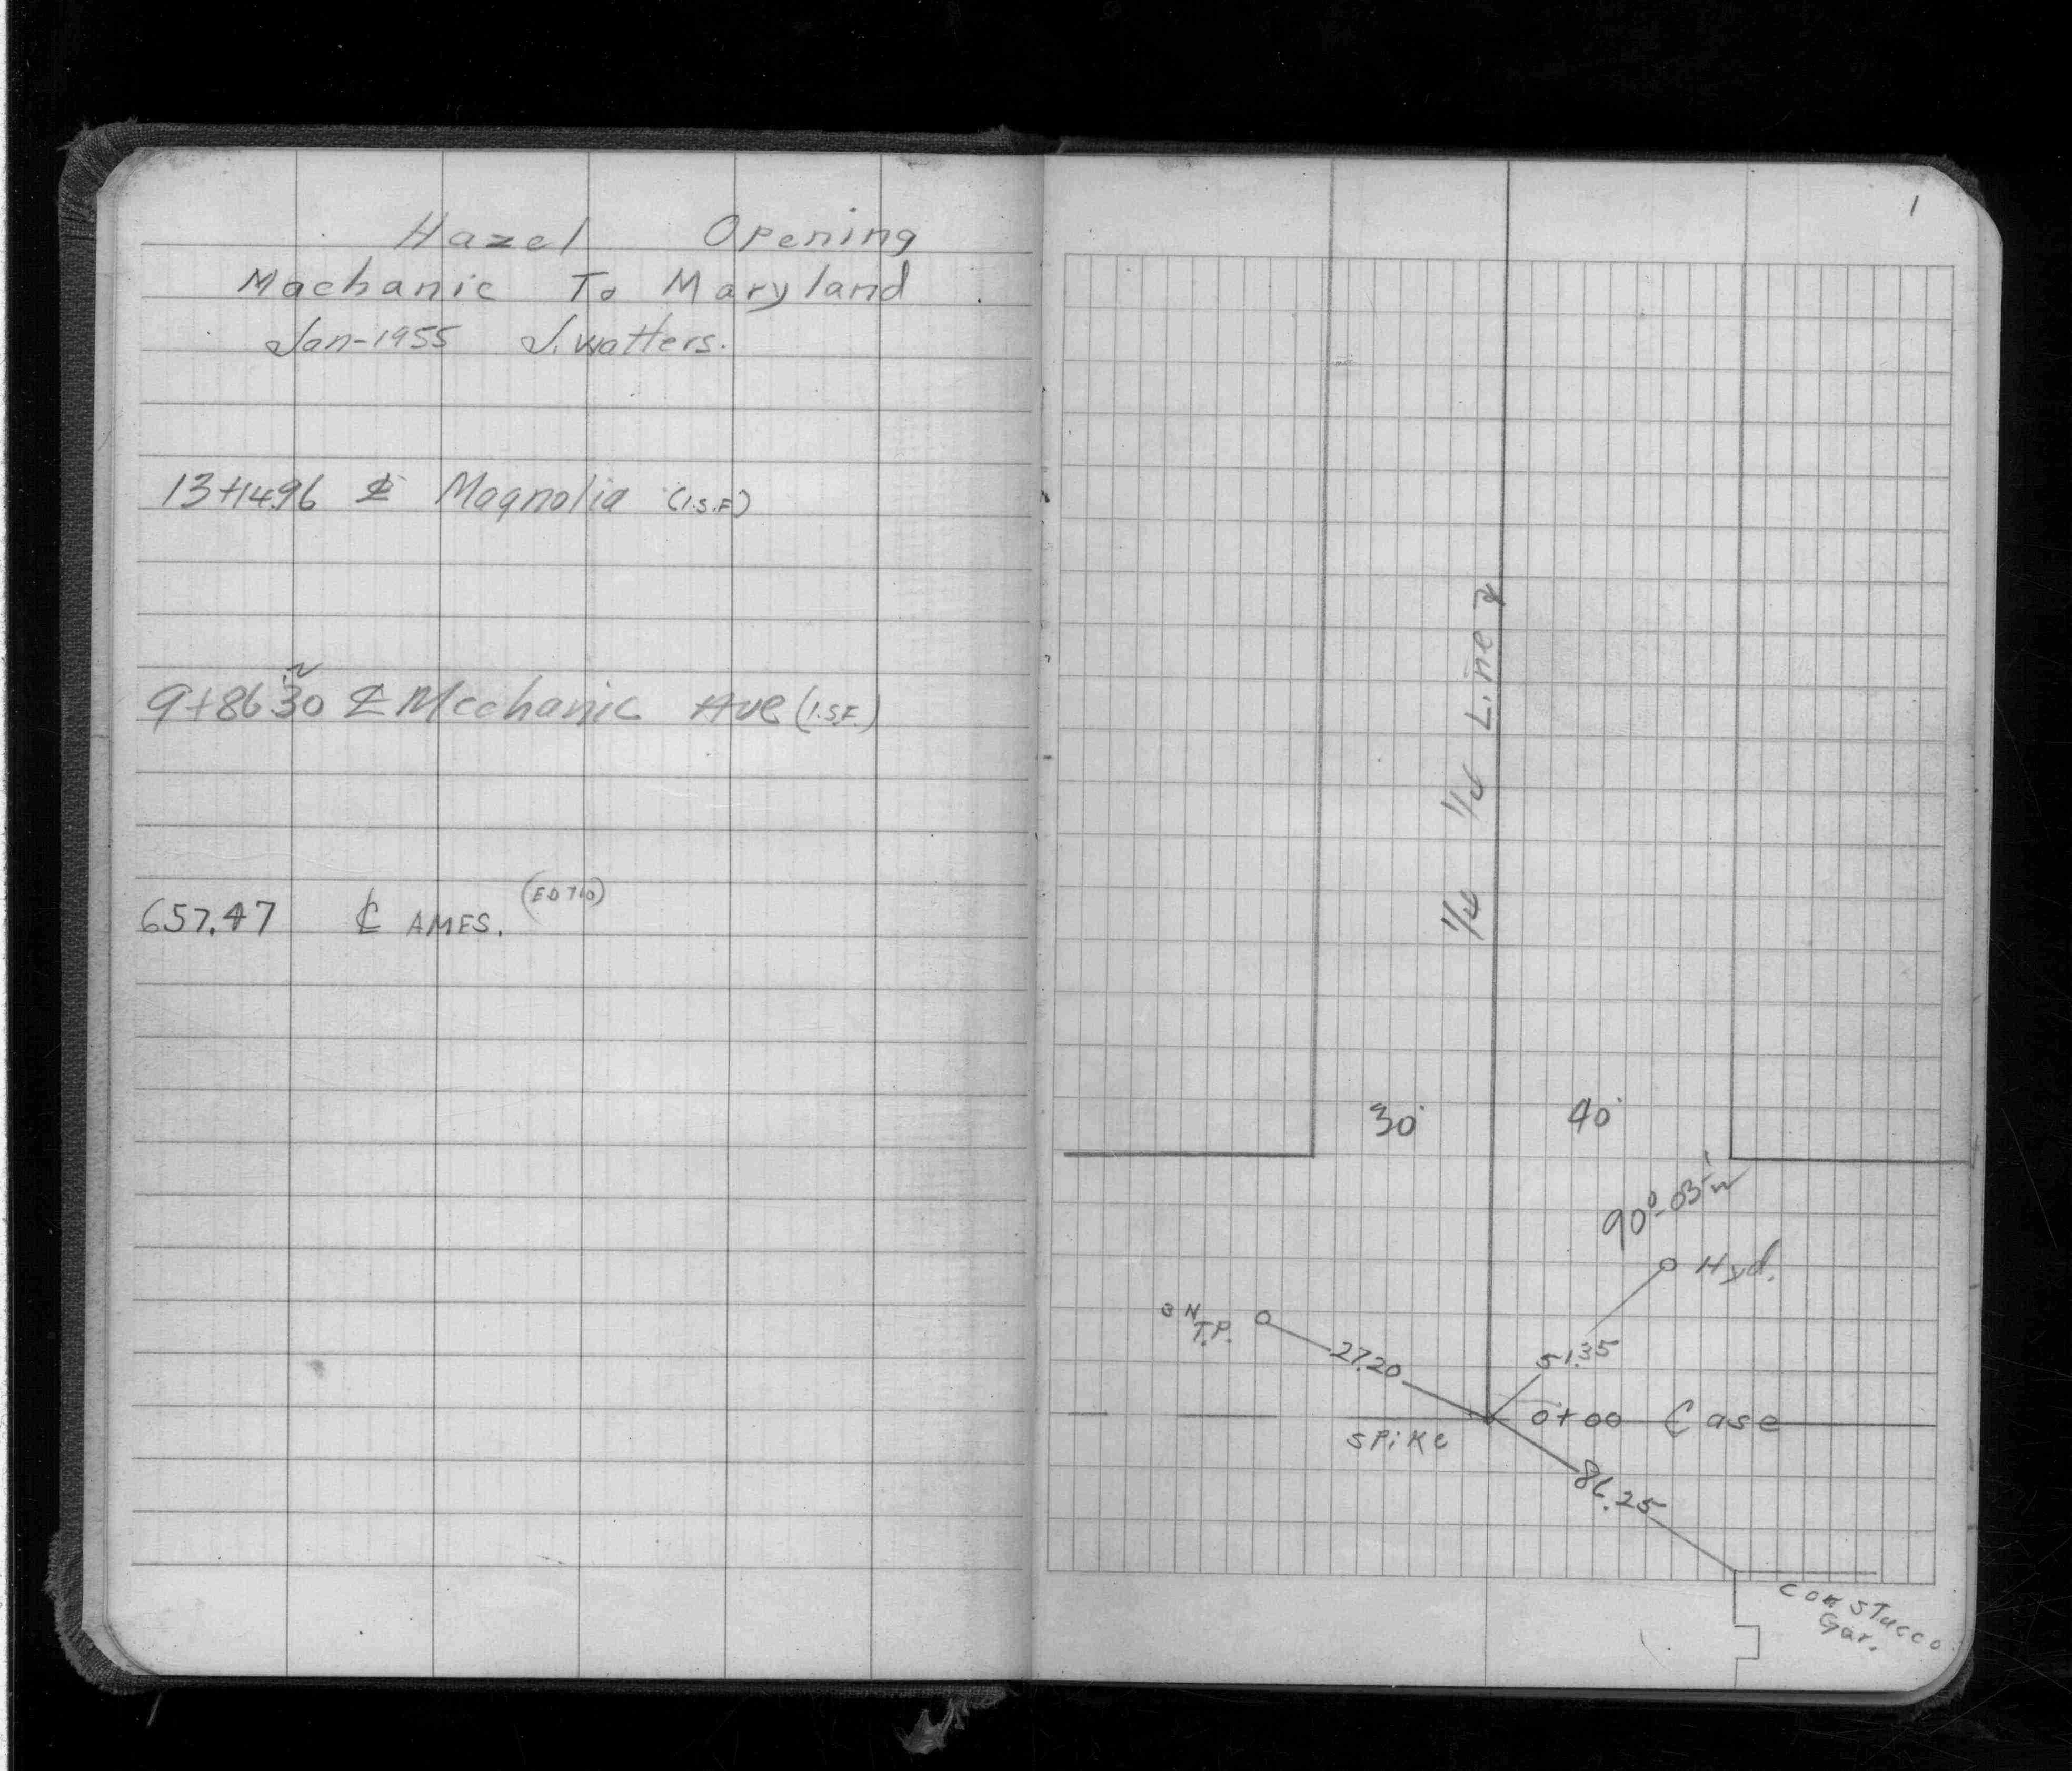 Hazel Opening
Machanic To Maryland
Jan-1955 J. Watters.
13+14.96 ℄ Magnolia (I.S.F)
9+86.30 ℄ Mechanic Ave (I.S.F.)
657.47 ℄ AMES.
1
1/4 1/4 Line
30' 40'
90°-03'
Hyd.
T.P.
27.20
51.35
0+00 ℄ ase
SPiKe
86.25
cor STucco
Gar.